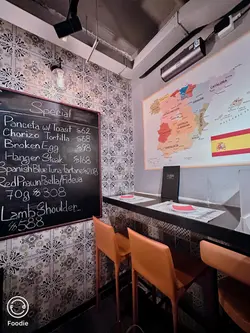 Special
Panceta w/ Toast
Chorizo Tortilla
Broken Egg
Hanger Steak $168
Spanish Blue tuna tartare
Red Prawn Bella/Fideua
70g $308
Lamb Shoulder
$588
Foodie